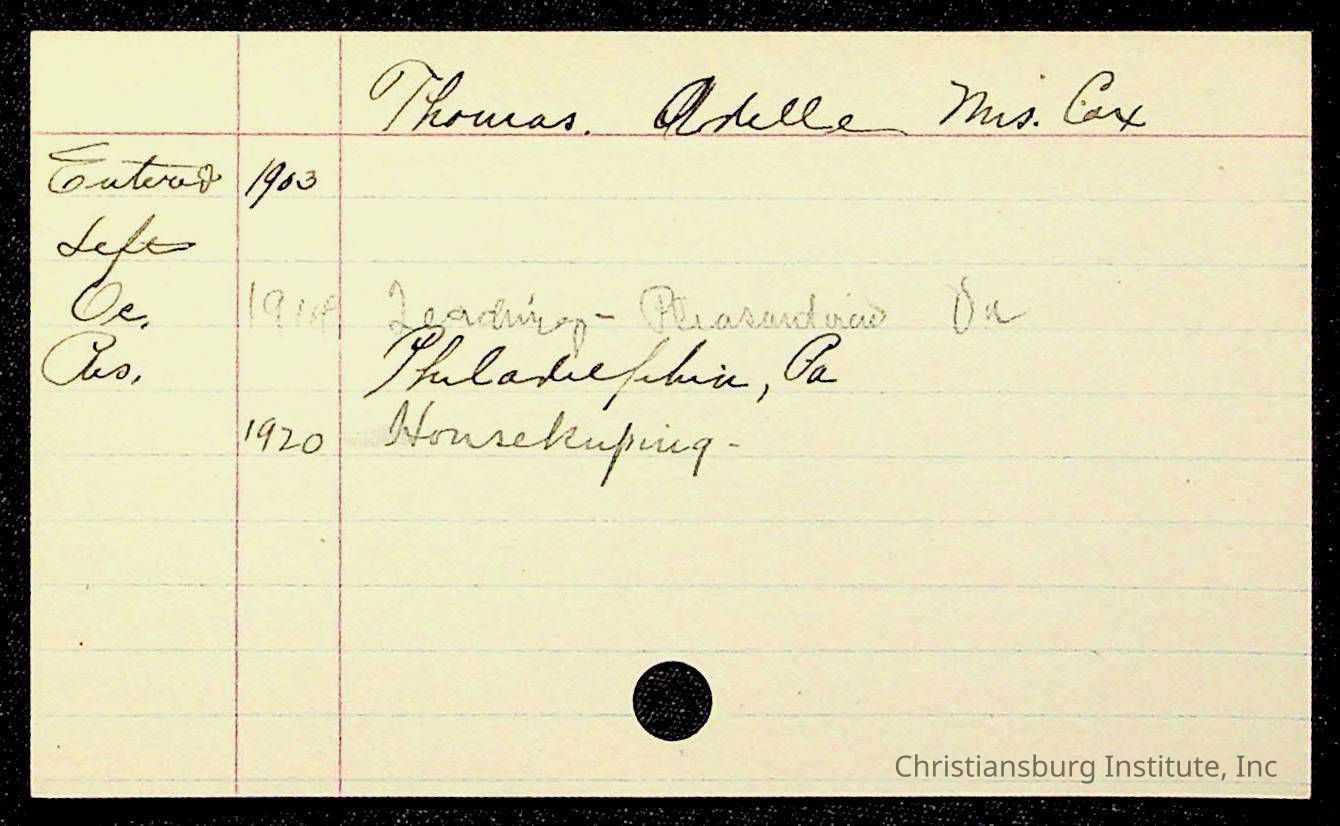 Thomas. Adelle Mrs. Cox
Entered 1903
Left
Oc. Teaching - Pleasantview Va
Res. Philadelphia, Pa
1920 Housekeeping -
Christiansburg Institute, Inc